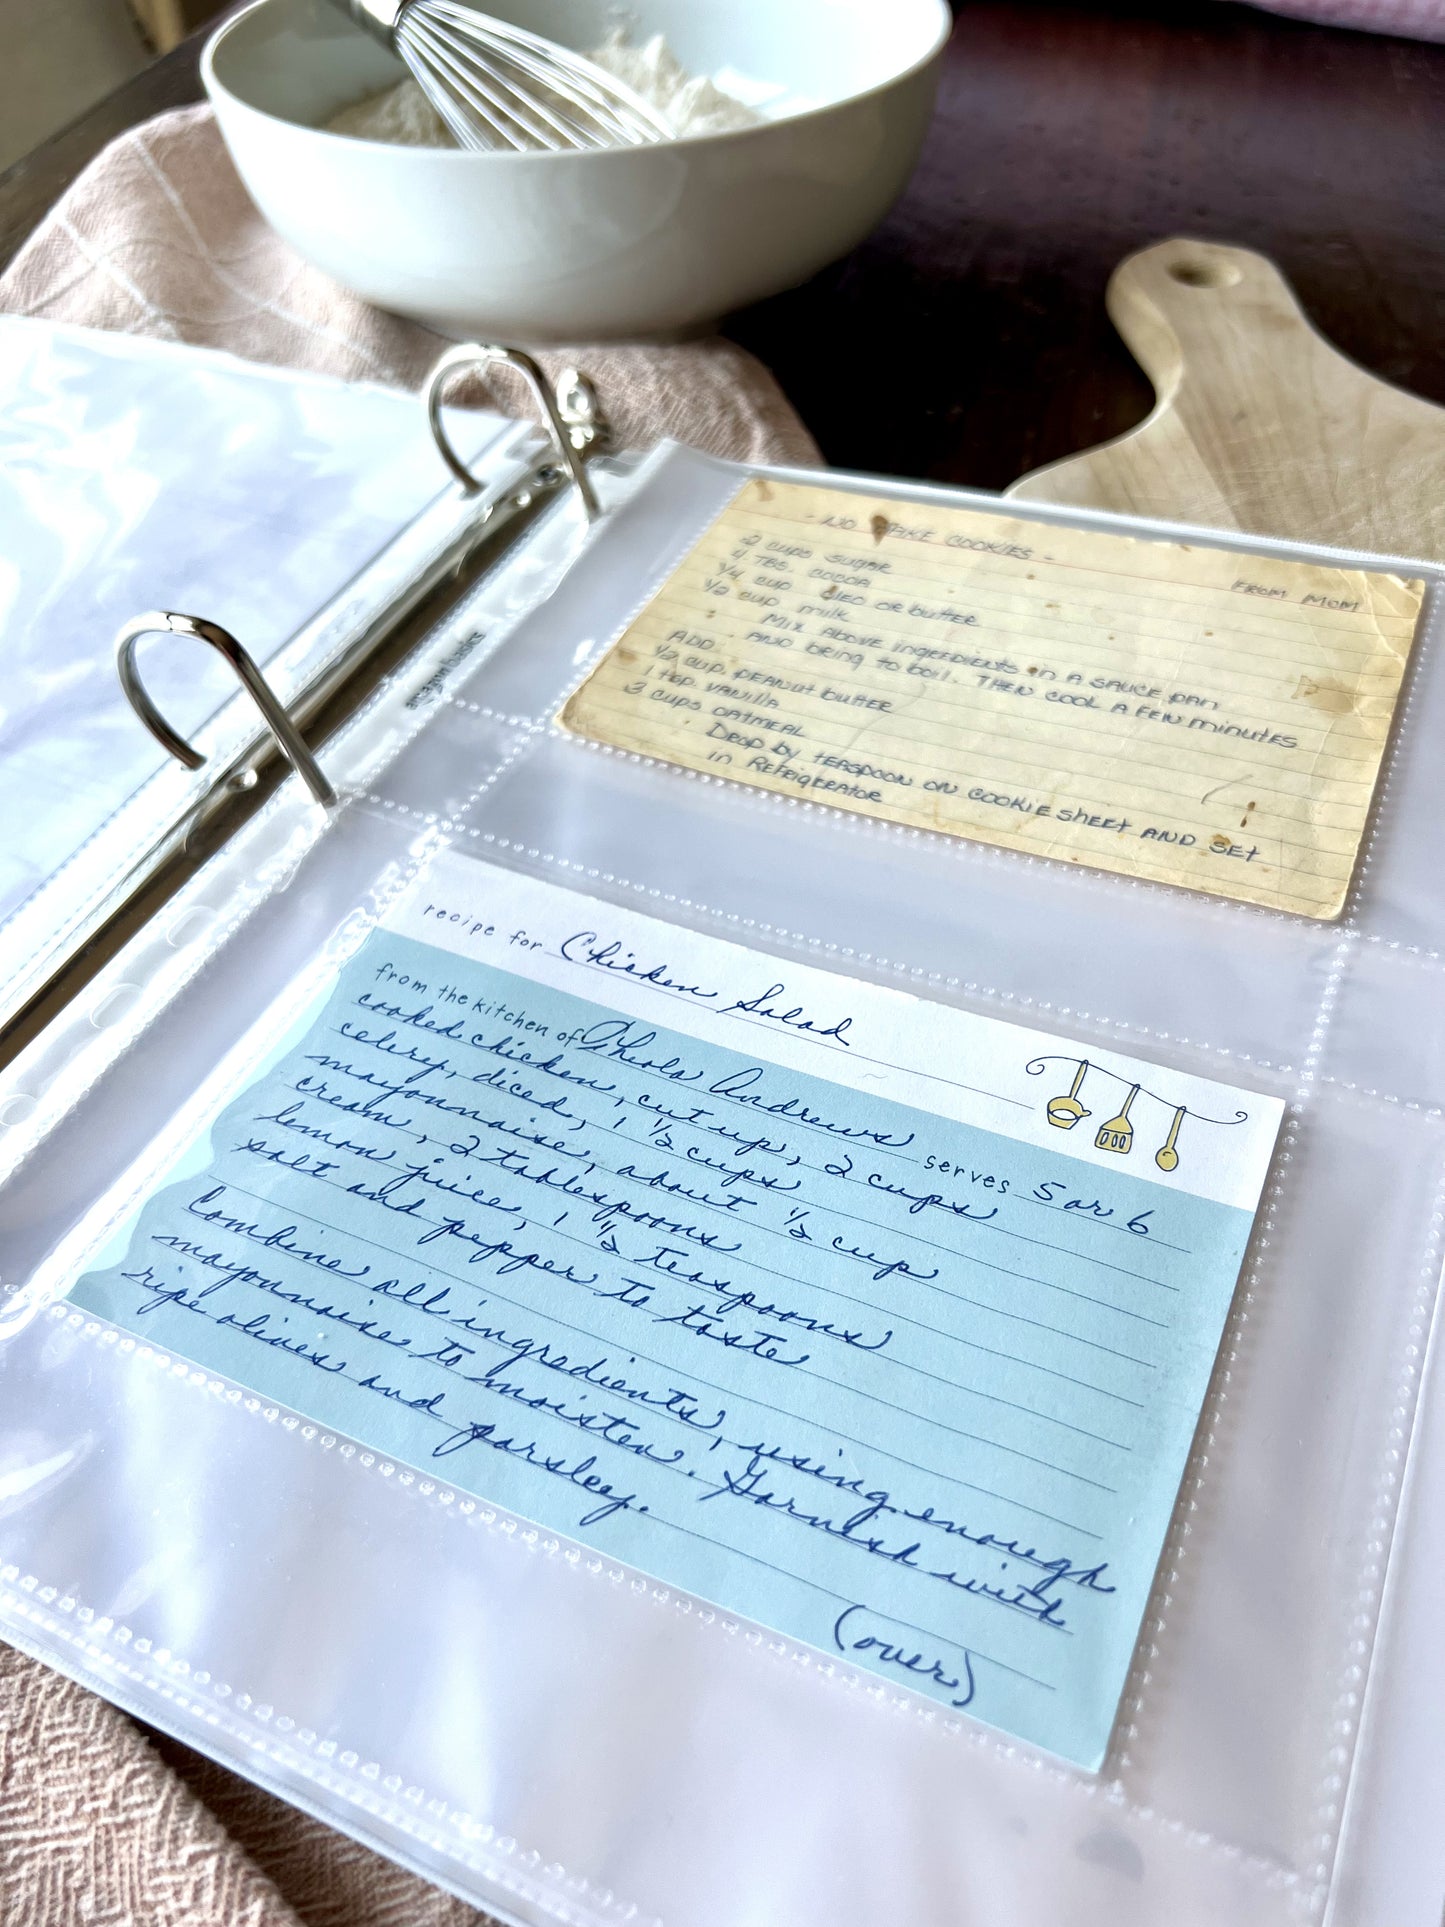 - NO BAKE COOKIES -
FROM MOM
2 cups sugar
4 TBS. COCOA
1/4 cup OLEO OR butter
1/2 cup milk
Mix above ingredients in A SAUCE pan
AND bring to boil. THEN COOL A FEW minutES
ADD:
1/2 cup. pEANut buttER
1 tsp. vanilla
3 cups OATMEAL
Drop by tEASpOON ON COOKIE shEEt AND SEt
in REfRigERAtOR
amazonbasics
recipe for Chicken Salad
from the kitchen of Andrews serves 5 or 6
cooked chicken, cut up, 2 cups
celery, diced, 1 1/2 cups
mayonnaise, about 1/2 cup
cream, 2 tablespoons
lemon juice, 1 1/2 teaspoons
salt and pepper to taste
Combine all ingredients, using enough
mayonnaise to moisten. Garnish with
ripe olives and parsley.
(over)